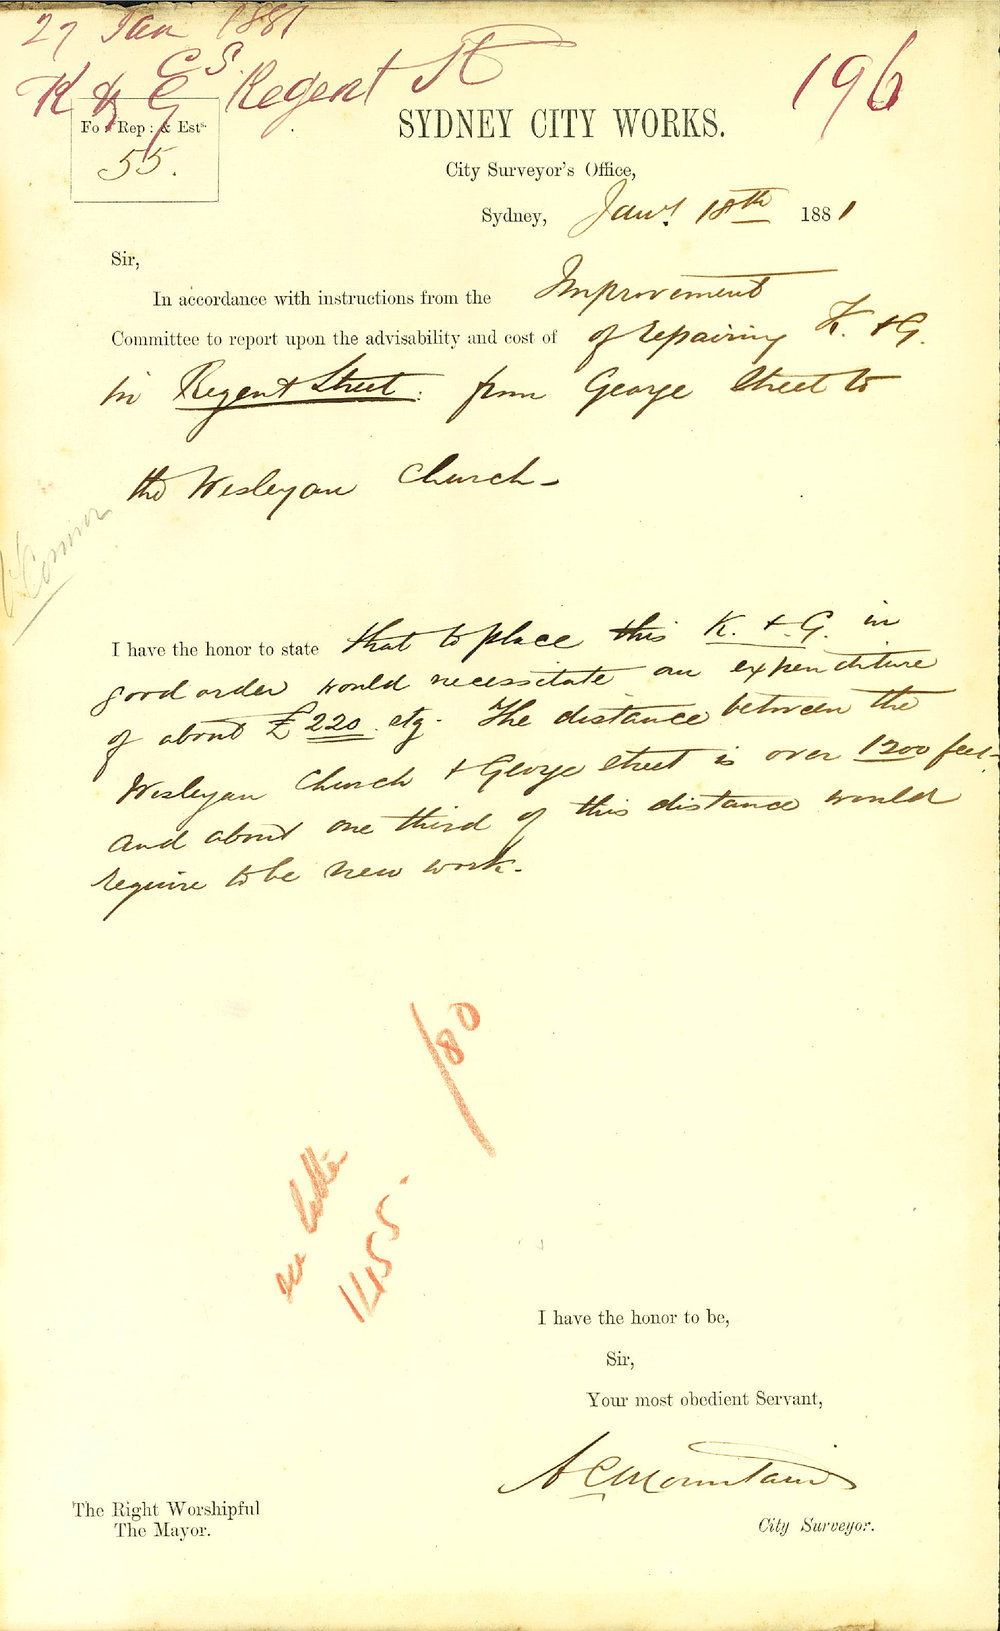 27 Jan 1881
C S
K & G Regent St
196
Fo: Rep: & Est
55.
SYDNEY CITY WORKS.
City Surveyor's Office,
Sydney, Jany 18th 1881
Sir,
In accordance with instructions from the Improvement
Committee to report upon the advisability and cost of of repairing K. & G.
in Regent Street: from George Street to
the Wesleyan Church -
O'Connor
I have the honor to state that to place this K. & G. in
good order would necessitate an expenditure
of about £220. stg. The distance between the
Wesleyan Church & George Street is over 1200 feet
and about one third of this distance would
require to be new work.
/80
1455
I have the honor to be,
Sir,
Your most obedient Servant,
A C Mountain
City Surveyor.
The Right Worshipful
The Mayor.